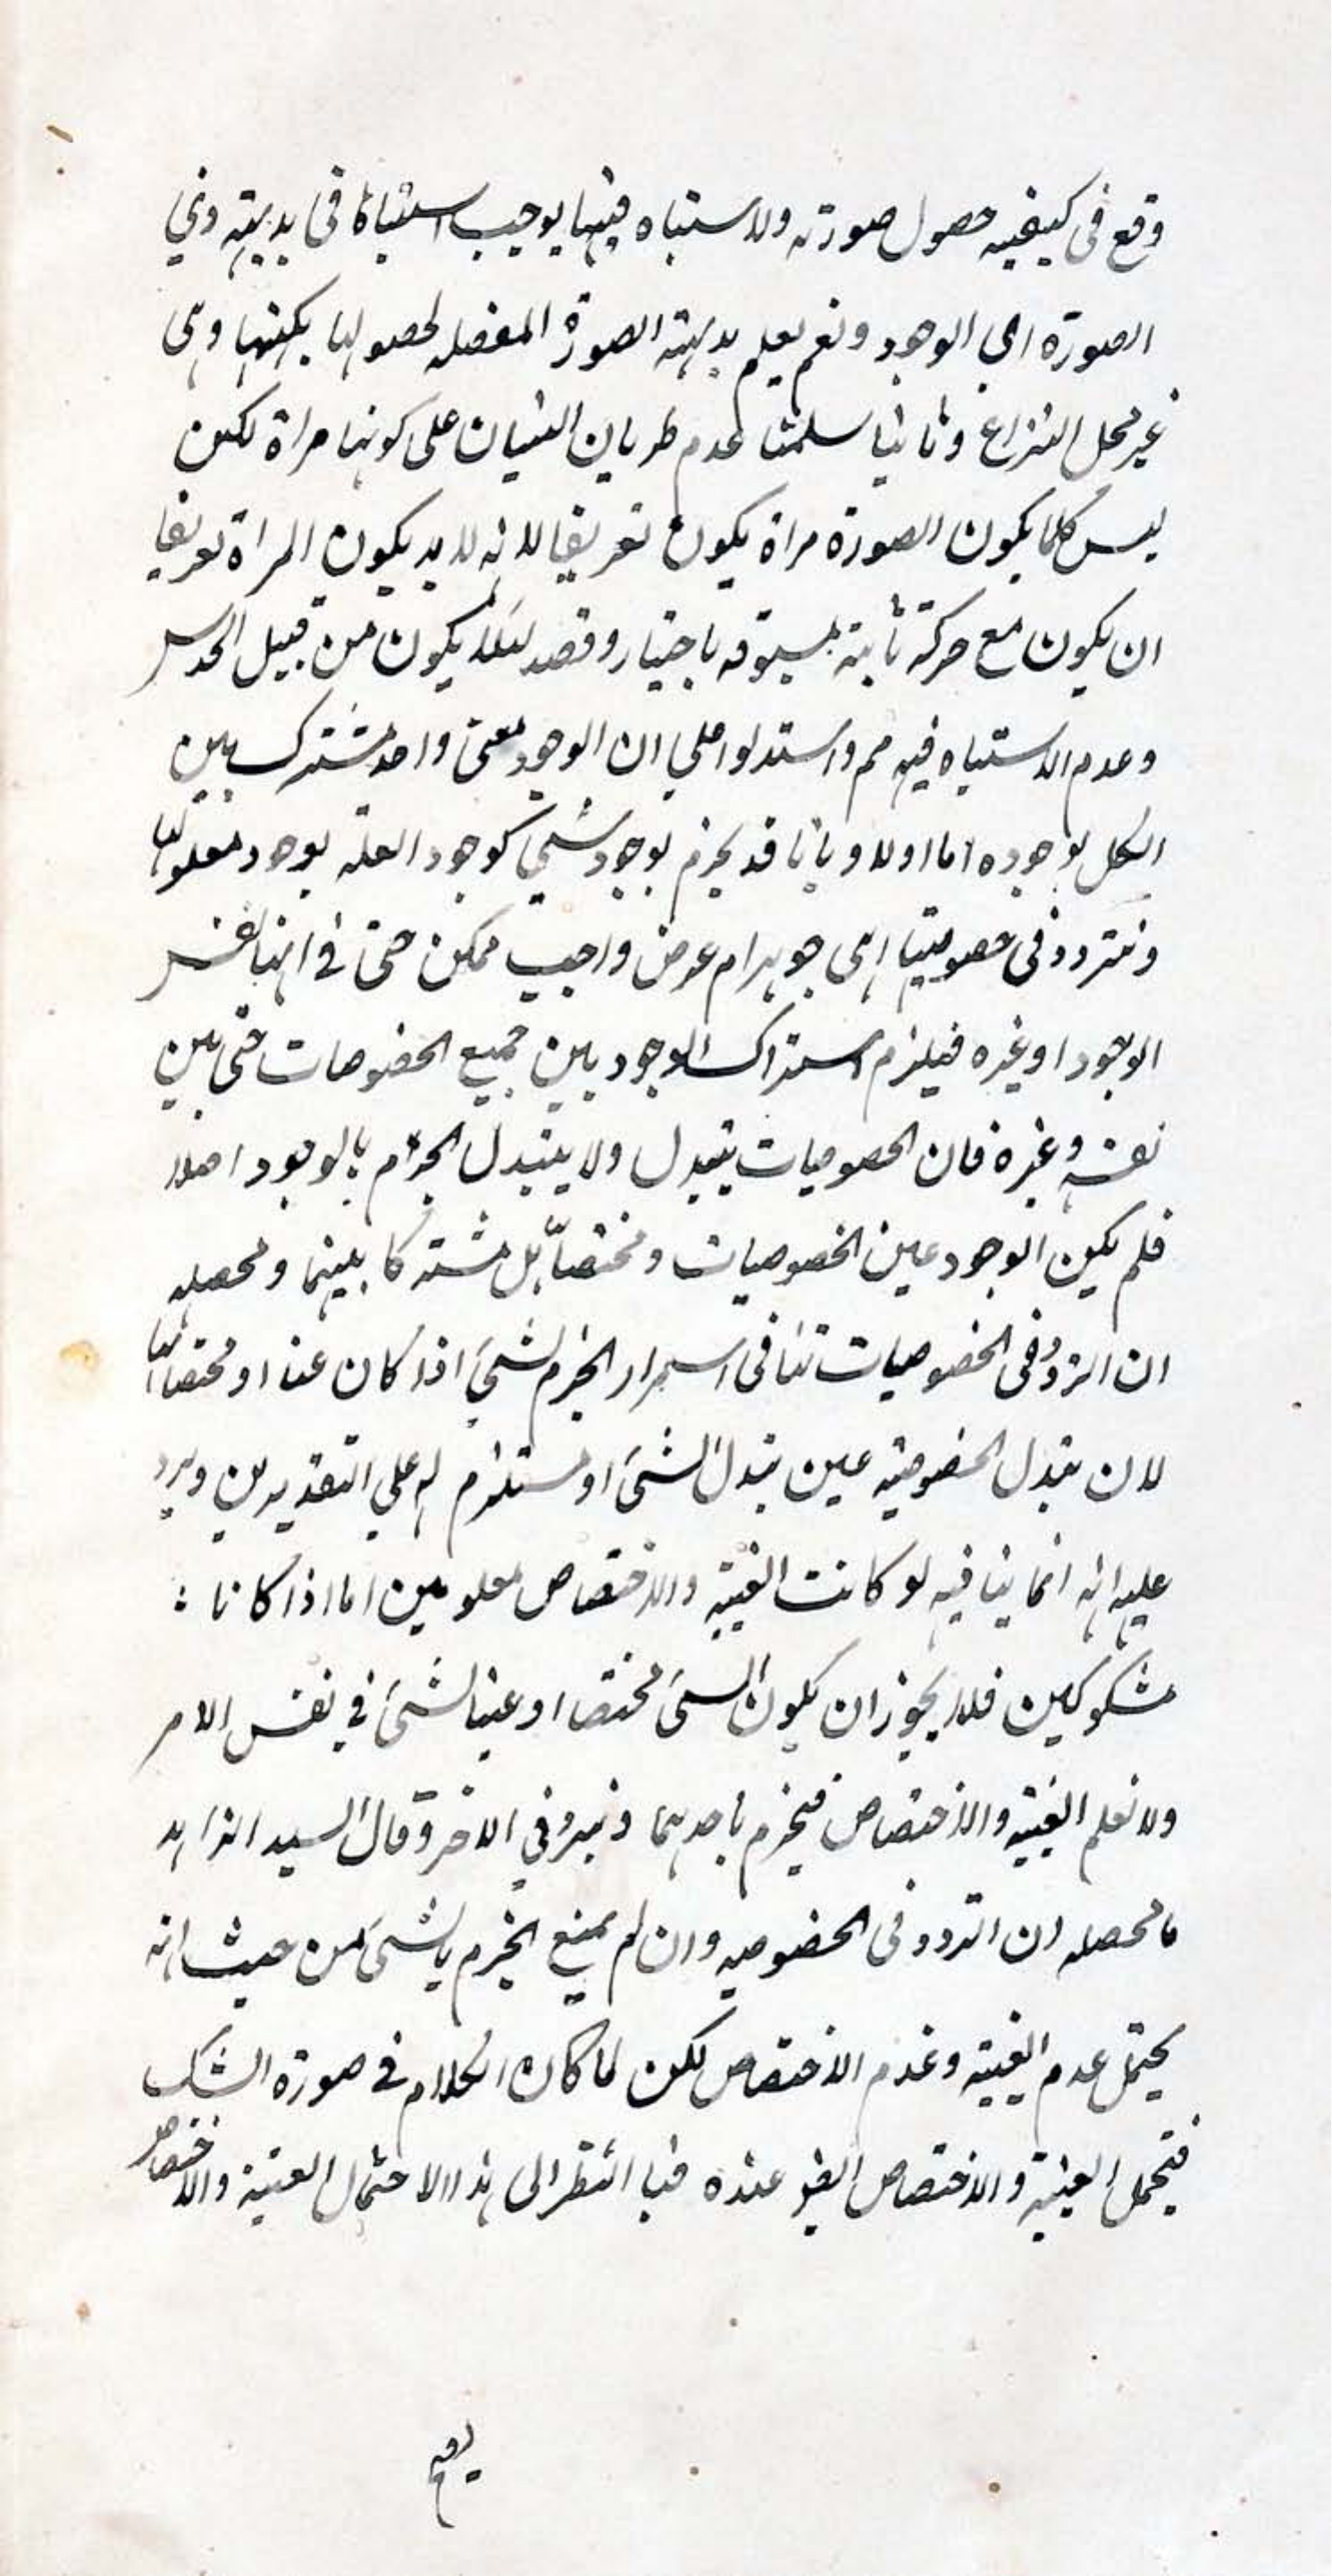 وقع فى كيفيه حصول صورته والاستباه فيها يوجب اشتباها فى بديهته وفي
الصورة اى الوجود ونعم يعلم بديهته الصورة المفصله لحصولها بكنهها وهى
غير محل النزاع وثانيا سلمنا عدم طريان النسيان على كونها مراة لكن
ليس كلما يكون الصورة مراة يكون تعريفا لانه لا بد يكون المراة تعريفا
ان يكون مع حركة ثانية مسبوقه باختيار وقصد لئلا يكون من قبيل الحدس
وعدم الاستباه فيه مم واستدلوا على ان الوجود معنى واحد مشترك بين
الكل بوجوده اما اولا وبانا قد نجزم بوجود شيئ كوجود العلة بوجود معلولها
ونتردد فى خصوصيتها اهى جوهر ام عرض واجب ممكن حتى فى انها نفس
الوجود او غيره فيلزم اشتراك الوجود بين جميع الخصوصات حتى بين
نفسه وغيره فان الخصوصيات يتبدل ولا يتبدل الجزم بالوجود اصلا
فلم يكن الوجود عين الخصوصيات ومختصا بل مشتركا بينهما ومحصله
ان التردد فى الخصوصيات تنافى استمرار الجزم لشئ اذا كان عنا او مختصا لها
لان تبدل الخصوصيته عين تبدل الشئ او مستلزم له على التقديرين ويرد
عليه انه انما ينافيه لو كانت العينية والاختصاص معلومين اما اذا كانا :
مشكوكين فلا يجوز ان يكون الشئ مختصا او عينا لشئ في نفس الامر
ولا نعلم العينية والاختصاص فيجزم باحدهما وتردد في الاخر وقال السيد الزاهد
ما محصله ان التردد فى الخصوصيه وان لم يمنع الجزم بالشئ من حيث انه
يحتمل عدم العينية وعدم الاختصاص لكن لما كان الكلام فى صورة الشك
فيحتمل العينية والاختصاص ايض عنده فبا النظر الى هذا الاحتمال العينية والاختصاص